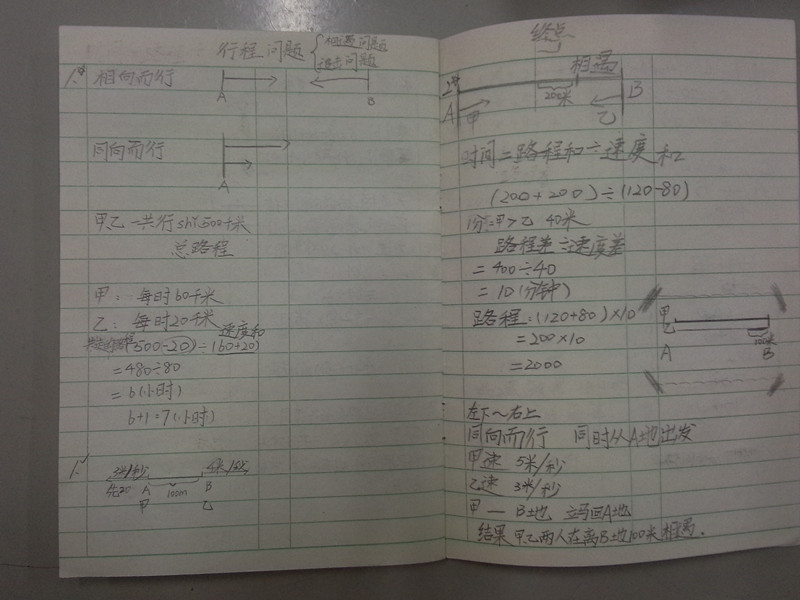 行程问题 { 相遇问题
追击问题
1.
相向而行
A
B
同向而行
A
甲乙一共行shi500千米
总路程
甲: 每时60千米
乙: 每时20千米
速度和
500-20)÷(60+20)
=480÷80
=6(小时)
6+1=7(小时)
1.
米/秒
4米/秒
先20 A 100m B
甲 乙
终点
相遇
200米
A
B
甲
乙
时间=路程和÷速度和
(200+200)÷(120-80)
1分:甲>乙 40米
路程差÷速度差
=400÷40
=10(分钟)
路程:(120+80)×10
=200×10
=2000
甲
乙
100米
A
B
左下~右上
同向而行 同时从A地出发
甲速 5米/秒
乙速 3米/秒
甲 — B地 立马回A地
结果甲乙两人在离B地100米相遇.